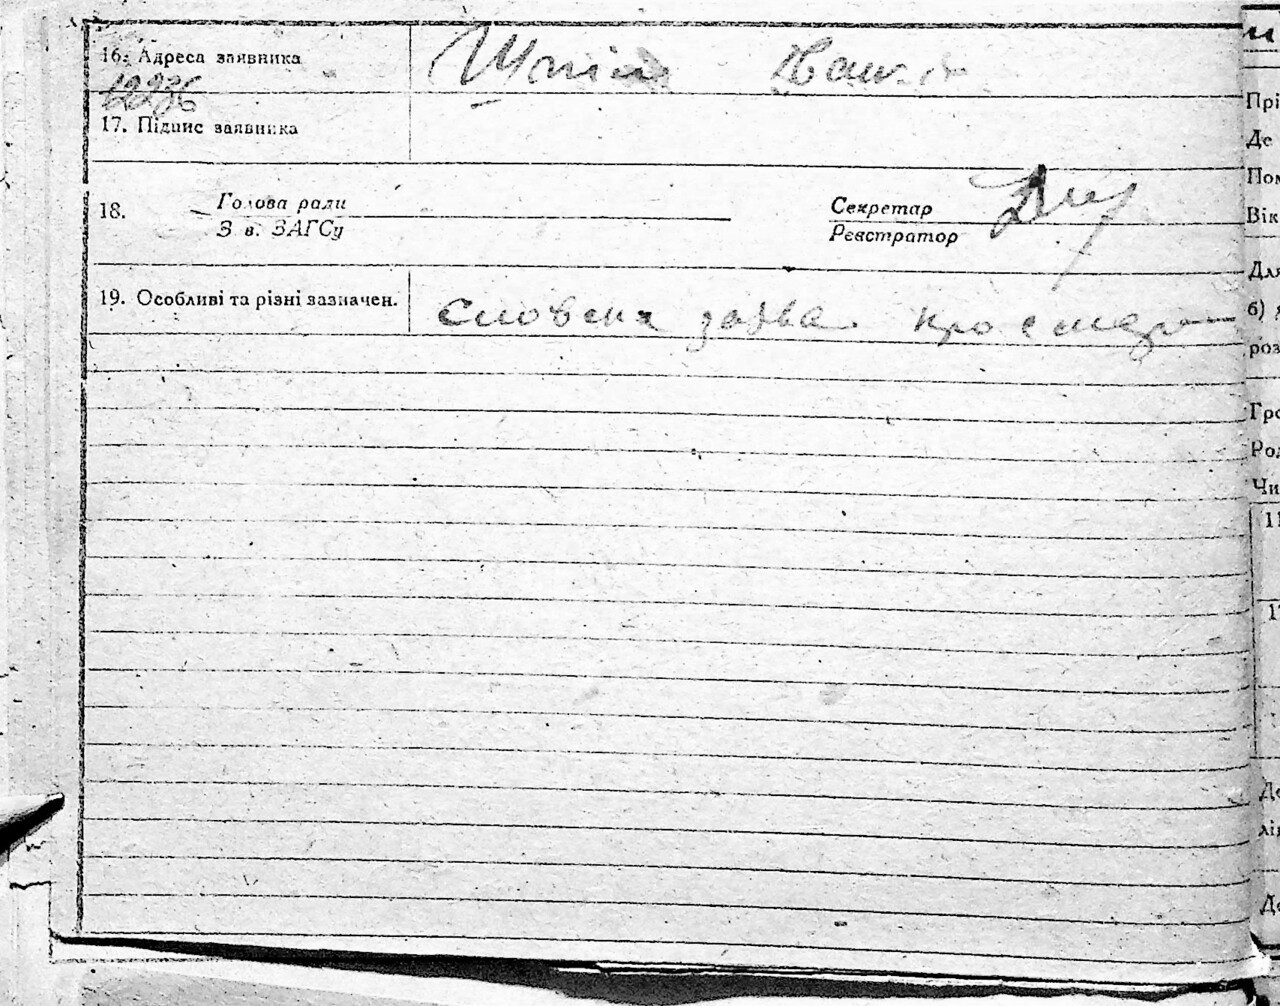 16. Адреса заявника
12236
17. Підпис заявника
18. Голова ради
З в. ЗАГСу
Секретар
Реєстратор
19. Особливі та різні зазначен. Словена заява про смерть
Прі
Де
Пом
Вік
Для
б)
роз
Гро
Род
Чи
11
17
Де
лі
До